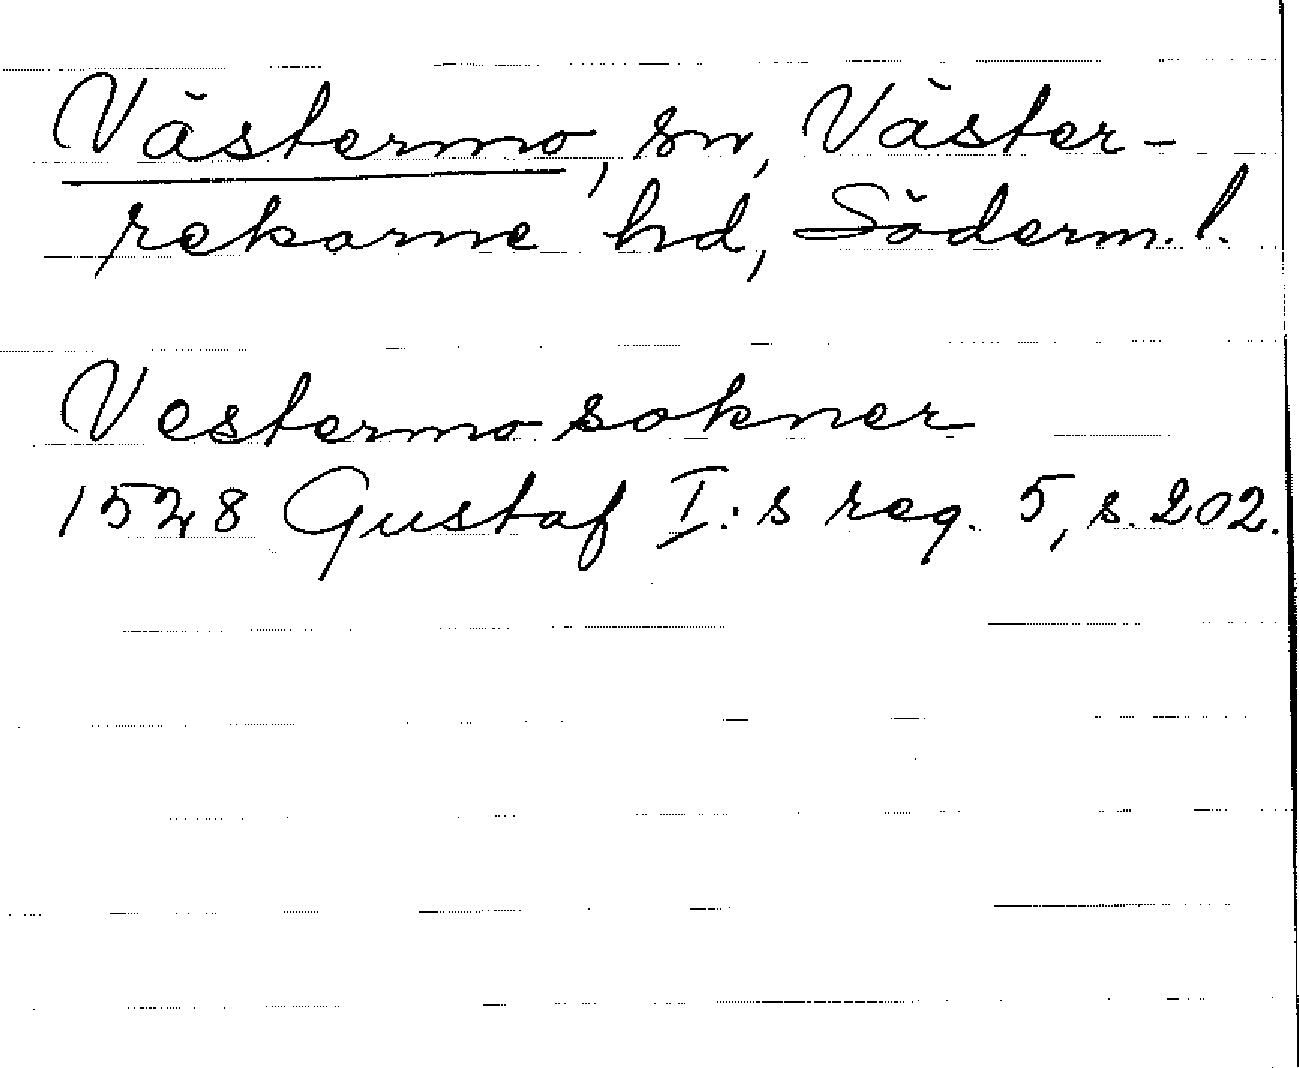 Västermo, sn, Väster-
rekarne hd, Söderm. l.
Vestermo sokner
1528 Gustaf I:s reg. 5, s. 202.